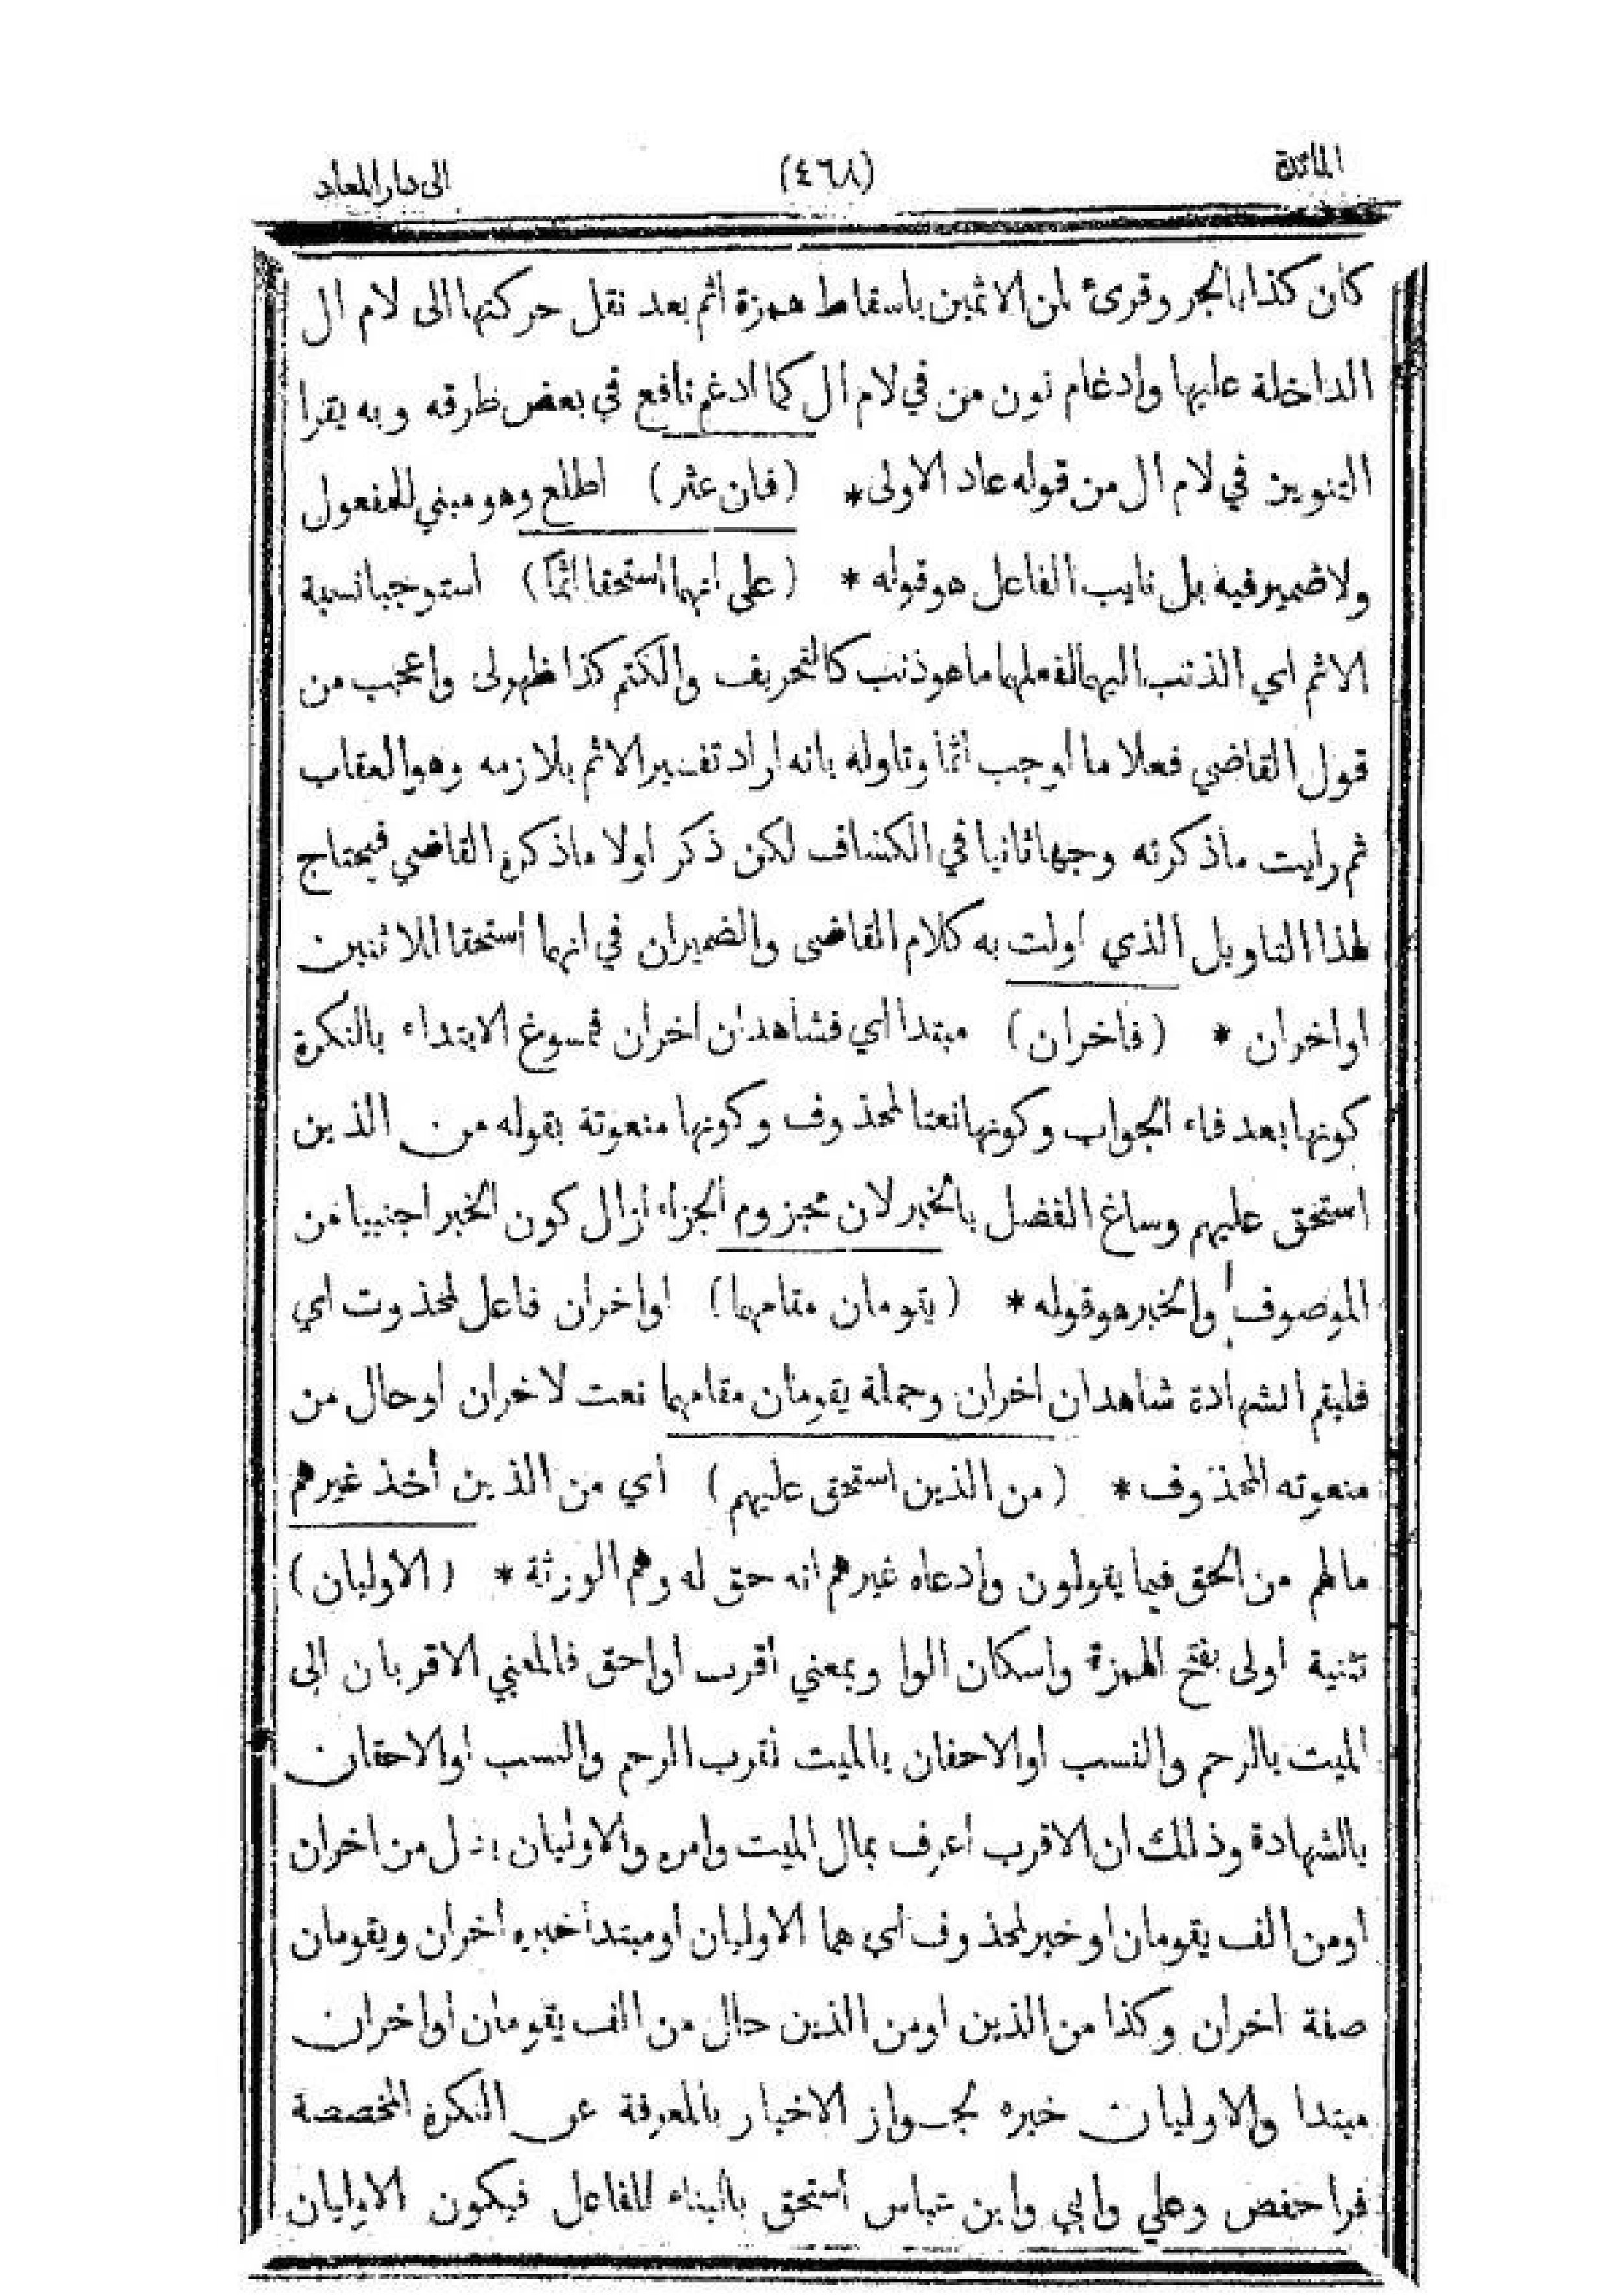 المائدة (٤٦٨) الى دار المعاد
كان كذا بالجر وقرئ لمن الاثمين باسقاط همزة اثم بعد نقل حركتها الى لام ال
الداخلة عليها وادغام نون من في لام ال كما ادغم نافع في بعض طرقه وبه يقرا
التنوين في لام ال من قوله عاد الاولى * (فان عثر) اطلع وهو مبني للمفعول
ولا ضمير فيه بل نايب الفاعل هو قوله * (على انهما استحقا اثمًا) استوجبا نسبة
الاثم اي الذنب اليهما لفعلهما ما هو ذنب كالتحريف والكتم كذا ظهر لى واعجب من
قول القاضي فعلا ما أوجب اثمًا وتاوله بانه اراد تفسير الاثم بلازمه وهو العقاب
ثم رايت ما ذكرته وجها ثانيا في الكشاف لكن ذكر اولا ما ذكره القاضي فيحتاج
لهذا التاويل الذي اولت به كلام القاضى والضميران في انهما استحقا للاثنين
او اخران * (فاخران) مبتدا اي فشاهدان اخران فمسوغ الابتداء بالنكرة
كونها بعد فاء الجواب وكونها نعتا لمحذوف وكونها منعوتة بقوله من الذين
استحق عليهم وساغ الفصل بالخبر لان مجزوم الجزاء ازال كون الخبر اجنبيا من
الموصوف والخبر هو قوله * (يقومان مقامهما) او اخران فاعل لمحذوف اي
فليقم الشهادة شاهدان اخران وجملة يقومان مقامهما نعت لاخران او حال من
منعوته المحذوف * (من الذين استحق عليهم) أي من الذين أخذ غيرهم
مالهم من الحق فيما يقولون وادعاه غيرهم انه حق له وهم الورثة * (الأوليان)
تثنية اولى بفتح الهمزة واسكان الوا وبمعني أقرب أو احق فالمعني الاقربان الى
الميت بالرحم والنسب او الاحقان بالميت لقرب الرحم والنسب او الاحقان
بالشهادة وذلك ان الاقرب أعرف بمال الميت وامره والاوليان بدل من اخران
او من الف يقومان او خبر لمحذوف اي هما الاوليان او مبتدأ خبره اخران ويقومان
صفة اخران وكذا من الذين او من الذين حال من الف يقومان أو اخران
مبتدا والاوليان خبره لجواز الاخبار بالمعرفة عن النكرة المخصصة
قرا حفص وعلي وابي وابن عباس استحق بالبناء للفاعل فيكون الاوليان